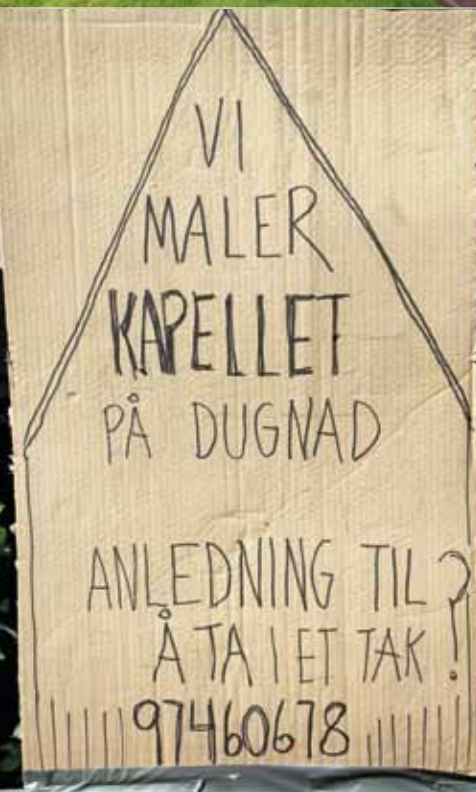 VI
MALER
KAPELLET
PÅ DUGNAD
ANLEDNING TIL
Å TA I ET TAK?
97460678